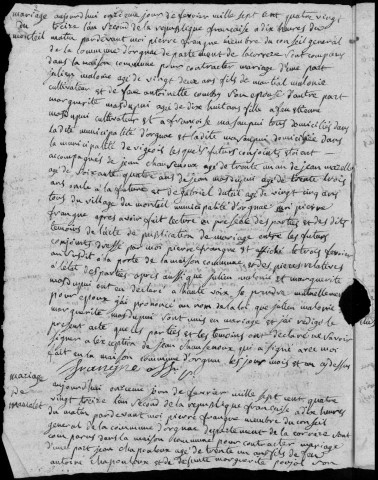 mariage aujourdhui onzieme jour de fevrier mille sept cent quatre vingt
du treize l'an second de la republique française a dix heures du
monteil matin pardevant moi pierre frangne membre du conseil general
de la commune d'orgnac departement de la correze sont comparus
dans la maison commune pour contracter mariage d'une part
julien malonie age de vingt deux ans fils de martial malonie
cultivateur et de antoinette son epouse d'autre part
marguerite masdupui age de dix huit ans fille a feu etienne
masdupui cultivateur et a françoise masmoupui tous domicilies dans
la dite municipalité d'orgnac et la dite masdupui domiciliee dans
la municipalité de vigeois les quels futurs conjoints etoient
accompagnes de jean chanseneuve age de trente un ans de jean
age de soixante quatre ans de jean masdupui age de trente trois
ans oncle a la future et de gabriel dutat age de vingt cinq ans
tous du village du monteil municipalité d'orgnac moi pierre
frangne apres avoir fait lecture en presence des parties et des dits
temoins de l'acte de publication de mariage entre les futurs
conjoints dressé par moi pierre frangne et affiché le trois fevrier
a la porte de la maison commune et des pieces relatives
a l'etat des parties apres aussi que julien malonie et marguerite
masdupui ont eu declaré a haute voix se prendre mutuellement
pour epoux j'ai prononcé au nom de la loi que julien malonie et
marguerite masdupui sont unis en mariage et j'ai redigé le
present acte que les parties et les temoins ont declaré ne savoir
signer a l'exception de jean chanseneuve qui a signé avec moi
fait en la maison commune d'orgnac les jour mois et an cy dessus
frangne off. p.
mariage aujourdhui onzieme jour de fevrier mille sept cent quatre
de vingt treize l'an second de la republique française a dix heures
du matin pardevant moi pierre frangne membre du conseil
general de la commune d'orgnac departement de la correze sont
comparus dans la maison commune pour contracter mariage
d'une part jean chapouloux age de trente un ans fils de feu
antoine chapouloux et de defunte marguerite poujol son